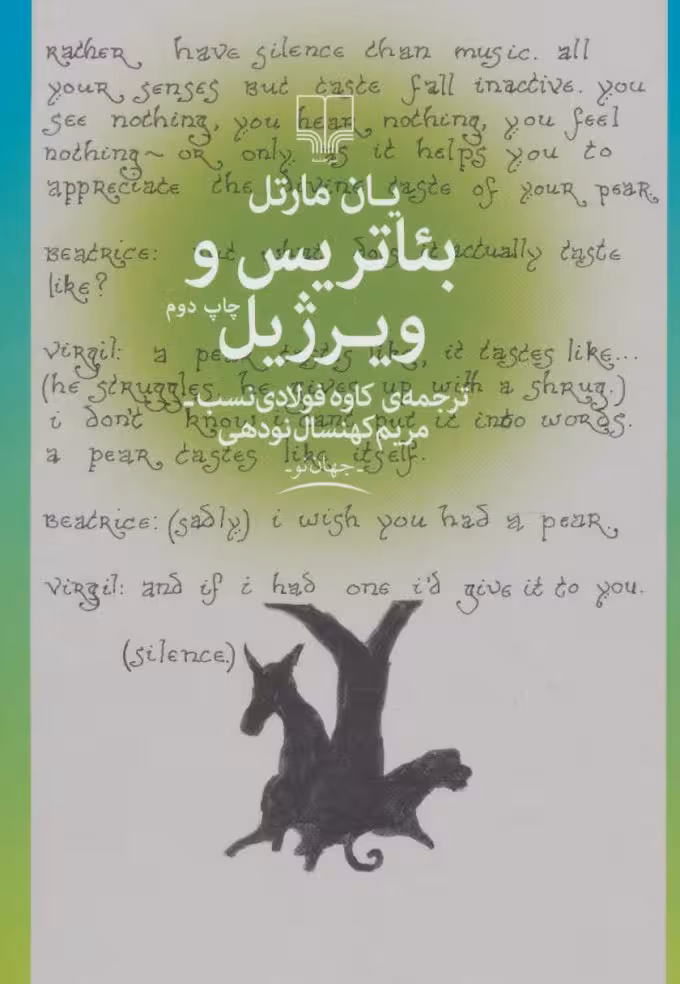 RatheR have silence than music. all
youR senses But taste fall inactive. you
see nothing, you heaR nothing, you feel
nothing~ oR only as it helps you to
appReciate the divine taste of youR peaR.
BeatRice: But what does it actually taste
like?
viRgil: a peaR tastes like, it tastes like...
(he stRuggles. he gives up with a shRug.)
i don't know. i can't put it into woRds.
a peaR tastes like itself.
BeatRice: (sadly) i wish you had a peaR.
viRgil: and if i had one i'd give it to you.
(silence.)
یان مارتل
بئاتریس و
ویرژیل
چاپ دوم
ترجمه‌ی کاوه فولادی‌نسب-
مریم کهنسال نودهی
-جهان‌نو-